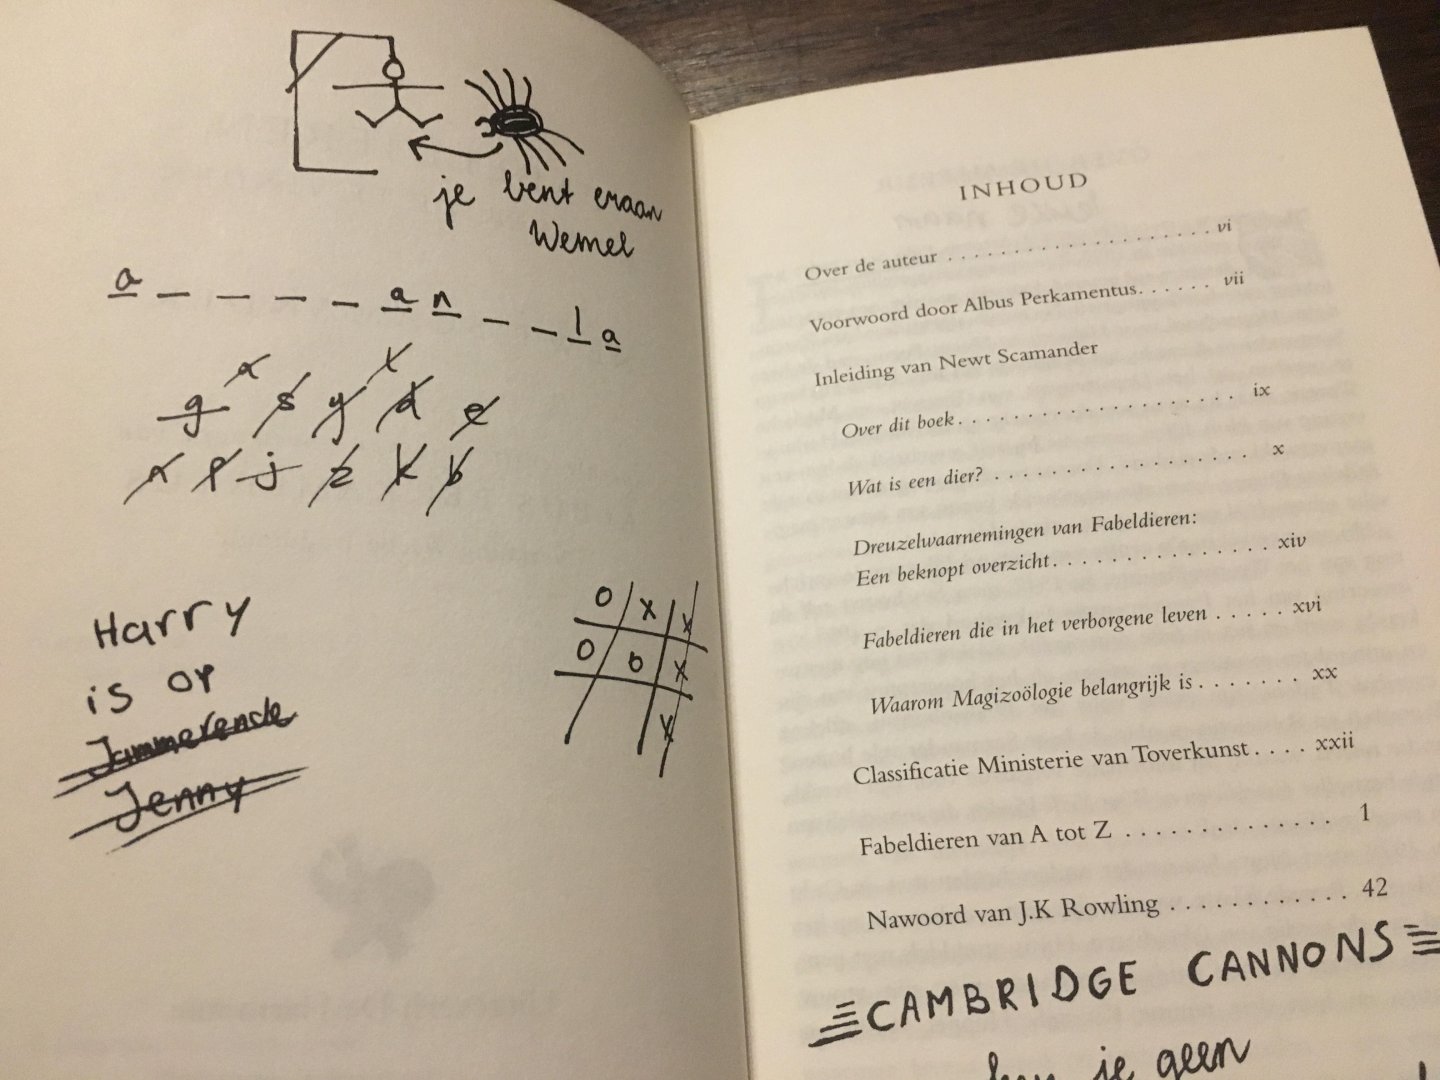 je bent eraan
Wemel
a _ _ _ _ a n _ _ l a
g s y d e
j z k b
Harry
is op
Jammerende
Jenny
O X X
O O X
X
INHOUD
Over de auteur . . . . . . . . . . . . . . . . . . . . . vi
Voorwoord door Albus Perkamentus. . . . . . vii
Inleiding van Newt Scamander
Over dit boek . . . . . . . . . . . . . . . . . . . . ix
Wat is een dier? . . . . . . . . . . . . . . . . . . x
Dreuzelwaarnemingen van Fabeldieren:
Een beknopt overzicht. . . . . . . . . . . . . . . . xiv
Fabeldieren die in het verborgene leven . . . . . xvi
Waarom Magizoölogie belangrijk is . . . . . . . xx
Classificatie Ministerie van Toverkunst . . . . xxii
Fabeldieren van A tot Z . . . . . . . . . . . . . . 1
Nawoord van J.K Rowling . . . . . . . . . . . . 42
CAMBRIDGE CANNONS
je geen